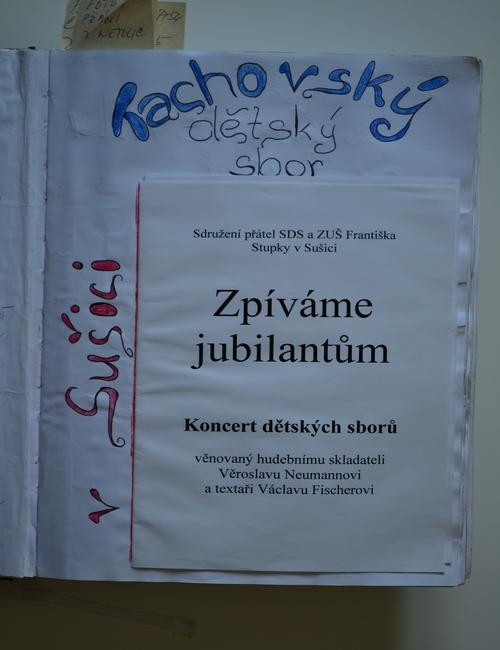 FOTO
PŘÁNÍ
Z NETOLIC
Bachovský
dětský
sbor
v Sušici
Sdružení přátel SDS a ZUŠ Františka
Stupky v Sušici
Zpíváme
jubilantům
Koncert dětských sborů
věnovaný hudebnímu skladateli
Věroslavu Neumannovi
a textaři Václavu Fischerovi